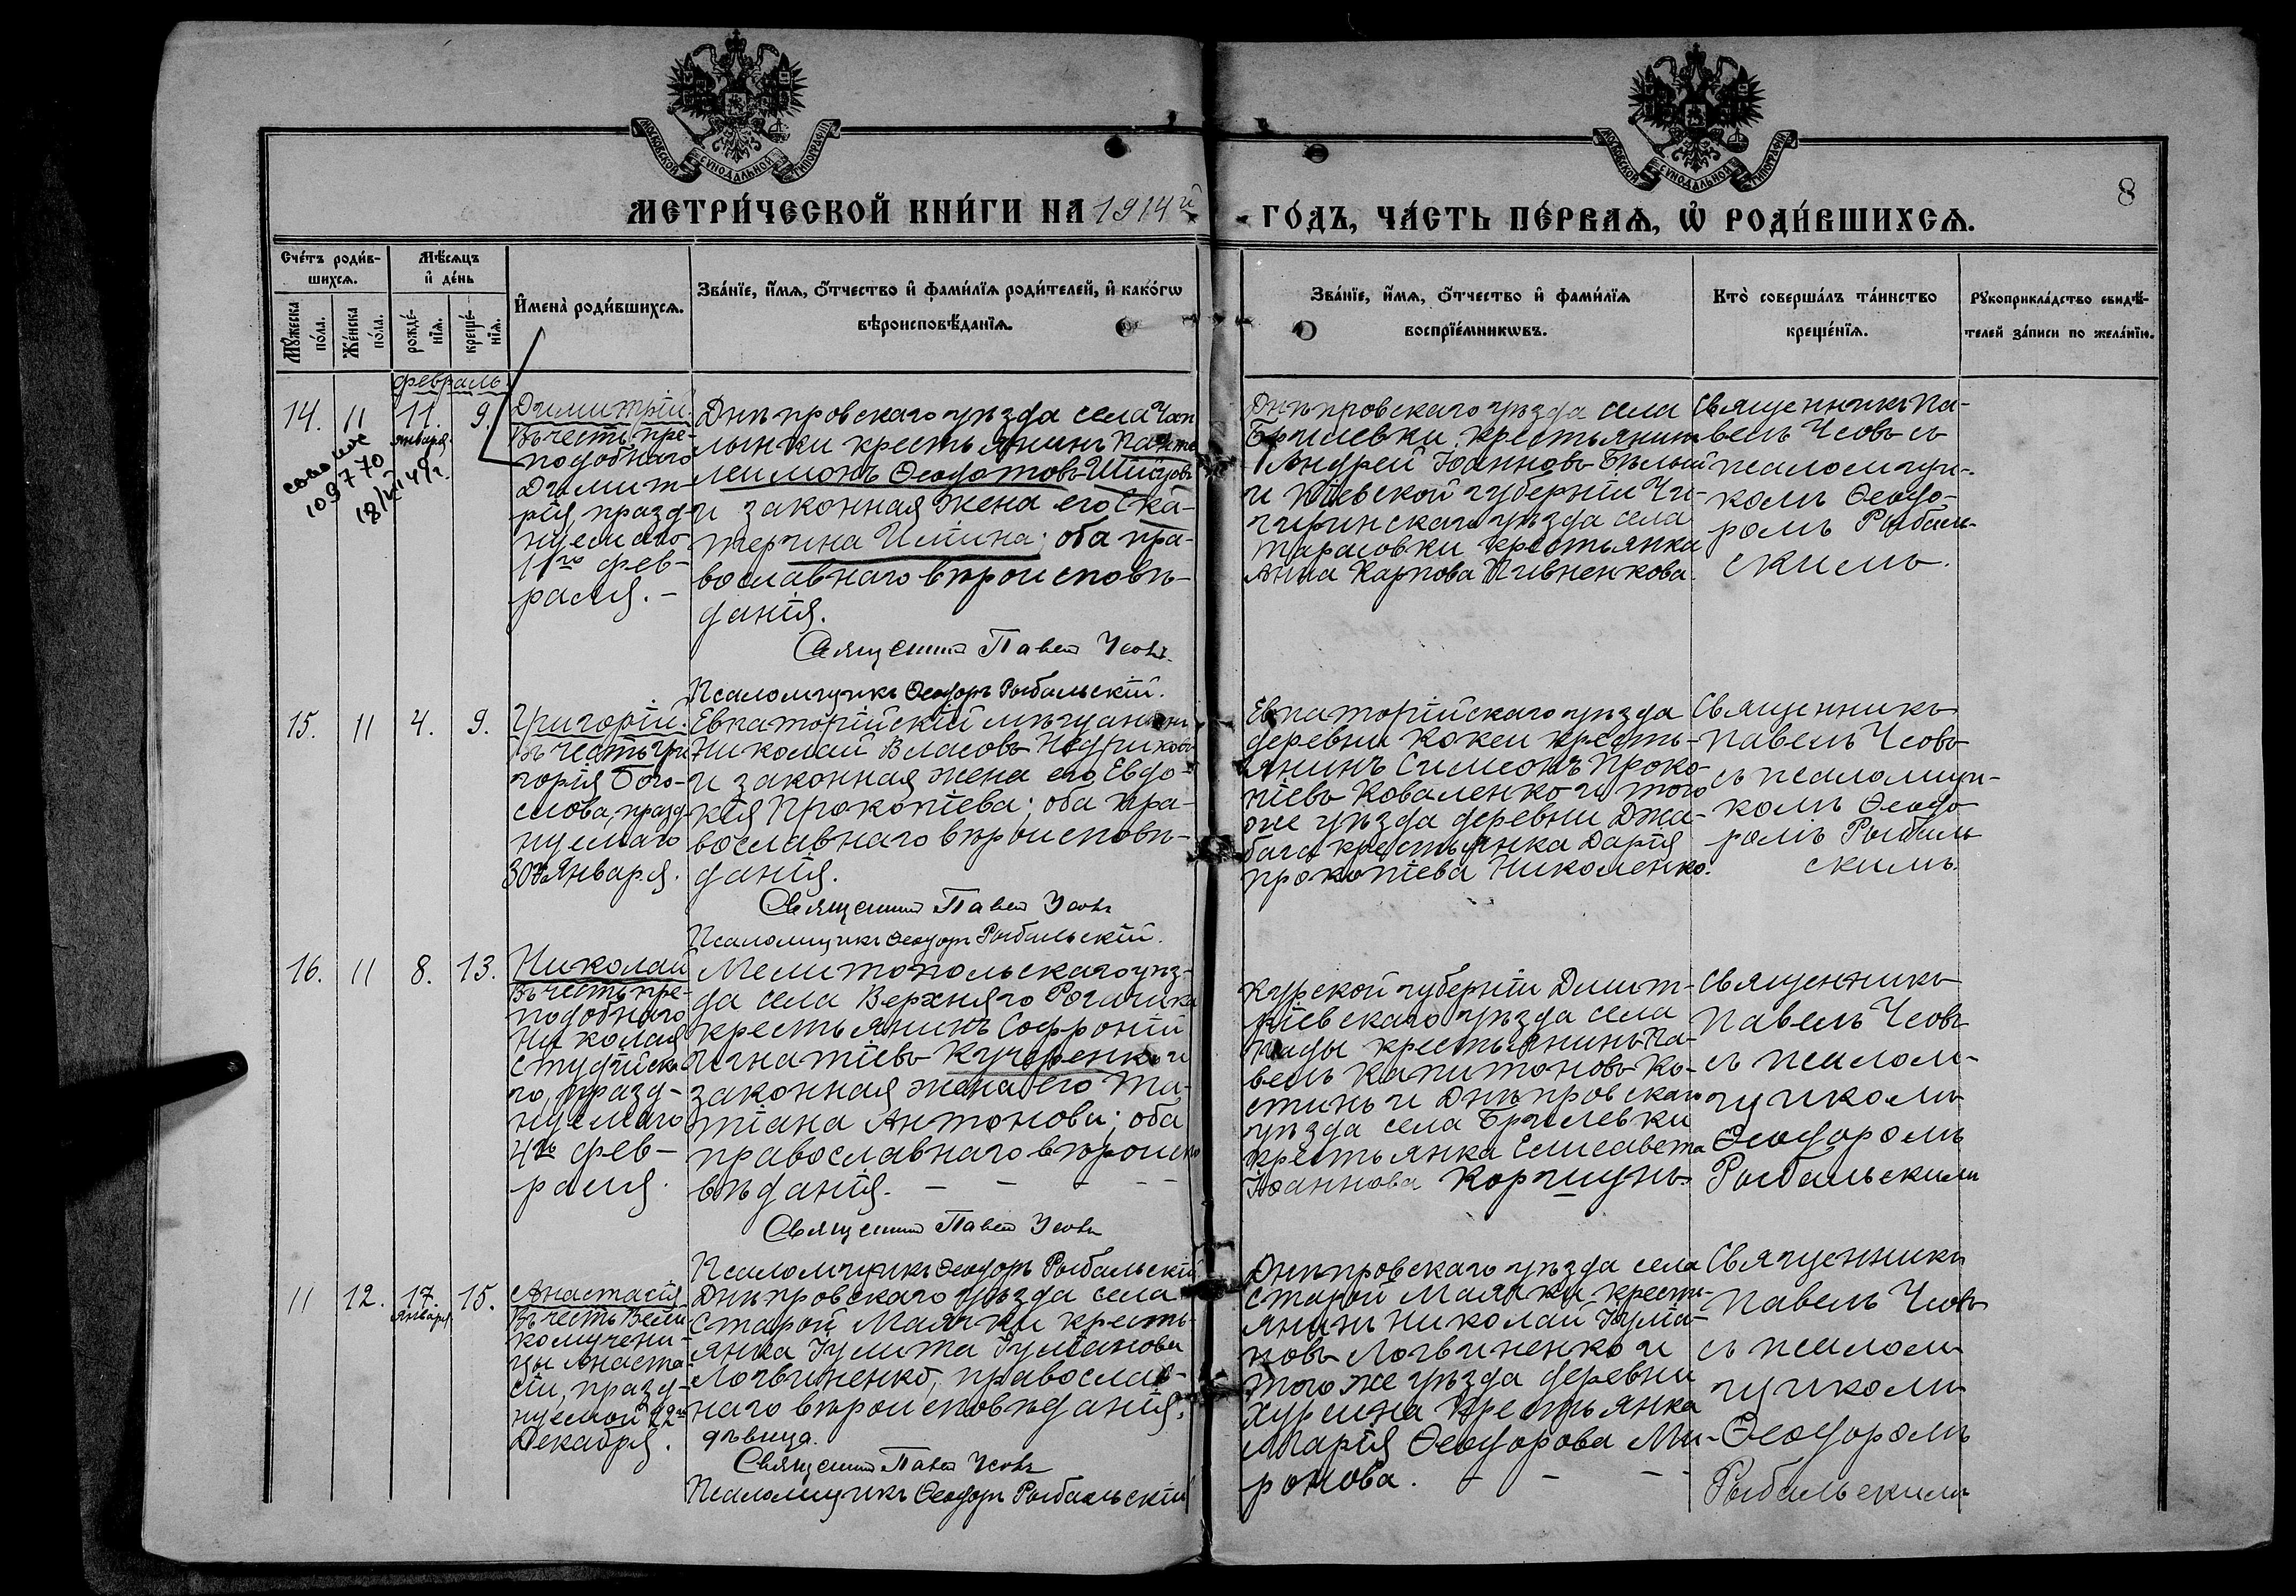 МОСКОВСКОЙ СѴНОДАЛЬНОЙ ТИПОГРАФІИ
МОСКОВСКОЙ СѴНОДАЛЬНОЙ ТИПОГРАФІИ
8
МЕТРИ́ЧЕСКОЙ КНИ́ГИ НА 1914й
ГО́ДЪ, ЧА́СТЬ ПЕ́РВАѦ, Ѡ҆ РОДИ́ВШИХСѦ.
Сче́тъ роди́в-
шихсѧ.
Мѣ́сѧцъ
и҆ де́нь
Мꙋ́жеска
по́ла.
Же́нска
по́ла.
рожде́-
нїѧ.
креще́-
нїѧ.
И҆мена̀ роди́вшихсѧ.
Зва́нїе, и҆́мѧ, ѻ҆́тчество и҆ фами́лїѧ роди́телей, и҆ како́гѡ
вѣроисповѣ́данїѧ.
Зва́нїе, и҆́мѧ, ѻ҆́тчество и҆ фами́лїѧ
воспрїе́мникѡвъ.
Кто̀ соверша́лъ та́инство
креще́нїѧ.
Рꙋкоприкла́дство свидѣ́-
телей за́писи по жела́нїю.
февраль.
14. 11 11. января. 9.
109770
18/XI 49г.
Димитрій.
Въ честь пре-
подобнаго
Димит-
рія, празд-
нуемаго
11го фев-
раля. –
Днѣпровскаго уѣзда села Чап
лынки крестьянинъ Панте
леимонъ Ѳеодотовъ
и законная жена его Ека-
терина ; оба пра-
вославнаго вѣроисповѣ-
данія.
Священникъ Павелъ Усовъ.
Псаломщикъ Ѳеодоръ Рыбальскій.
Днѣпровскаго уѣзда села
Бріилевки крестьянинъ
Андрей Іоанновъ Бѣлый
и Кіевской губерніи Чи-
гиринскаго уѣзда села
Тарасовки крестьянка
Анна Карпова Пивненкова.
Священникъ Па-
велъ Усовъ съ
псаломщи-
комъ Ѳеодо-
ромъ Рыбаль-
скимъ.
15. 11 4. 9.
Григорій.
Въ честь Гри
горія Бого-
слова, празд-
нуемаго
30го Января.
Евпаторійскій мѣщанинъ
Николай Власовъ
и законная жена его Евдо-
кія Прокопіева; оба пра-
вославнаго вѣроисповѣ-
данія.
Священникъ Павелъ Усовъ
Псаломщикъ Ѳеодоръ Рыбальскій.
Евпаторійскаго уѣзда
деревни Кокеи кресть-
янинъ Симеонъ Проко-
піевъ Коваленко и того
же уѣзда деревни Джа-
бага крестьянка Дарія
Прокопіева Николенко.
Священникъ
Павелъ Усовъ
съ псаломщи-
комъ Ѳеодо-
ромъ Рыбаль
скимъ.
16. 11 8. 13.
Николай
Въ честь пре-
подобнаго
Николая
Студійска
го, празд-
нуемаго
4го фев-
раля.
Мелитопольскаго уѣз-
да села Верхняго Рогачика
крестьянинъ Софроній
Игнатіевъ Кучеренко и
законная жена его Та-
тіана Антонова; оба
православнаго вѣроиспо
вѣданія. – – – – –
Священникъ Павелъ Усовъ
Псаломщикъ Ѳеодоръ Рыбальскій
Курской губерніи Дмит-
ріевскаго уѣзда села
крестьянинъ Па-
велъ Капитоновъ Ко-
стинъ и Днѣпровскаго
уѣзда села Брилевки
крестьянка Елисавета
Іоаннова Коршунъ.
Священникъ
Павелъ Усовъ
съ псалом-
щикомъ
Ѳеодоромъ
Рыбальскимъ
11 12. 17. января 15.
Анастасія
Въ честь Вели
комучени-
цы Анаста-
сіи, празд-
нуемой 22го
Декабря.
Днѣпровскаго уѣзда села
Старой Маячки кресть-
янка Іулита Іуліанова
Логвиненко, православ-
наго вѣроисповѣданія,
дѣвица.
Священникъ Павелъ Усовъ
Псаломщикъ Ѳеодоръ Рыбальскій
Днѣпровскаго уѣзда села
Старой Маячки кресть-
янинъ Николай Іуліа-
новъ Логвиненко и
того же уѣзда деревни
крестьянка
Марія Ѳеодорова Ми-
ронова. – – – –
Священникъ
Павелъ Усовъ
съ псалом
щикомъ
Ѳеодоромъ
Рыбальскимъ